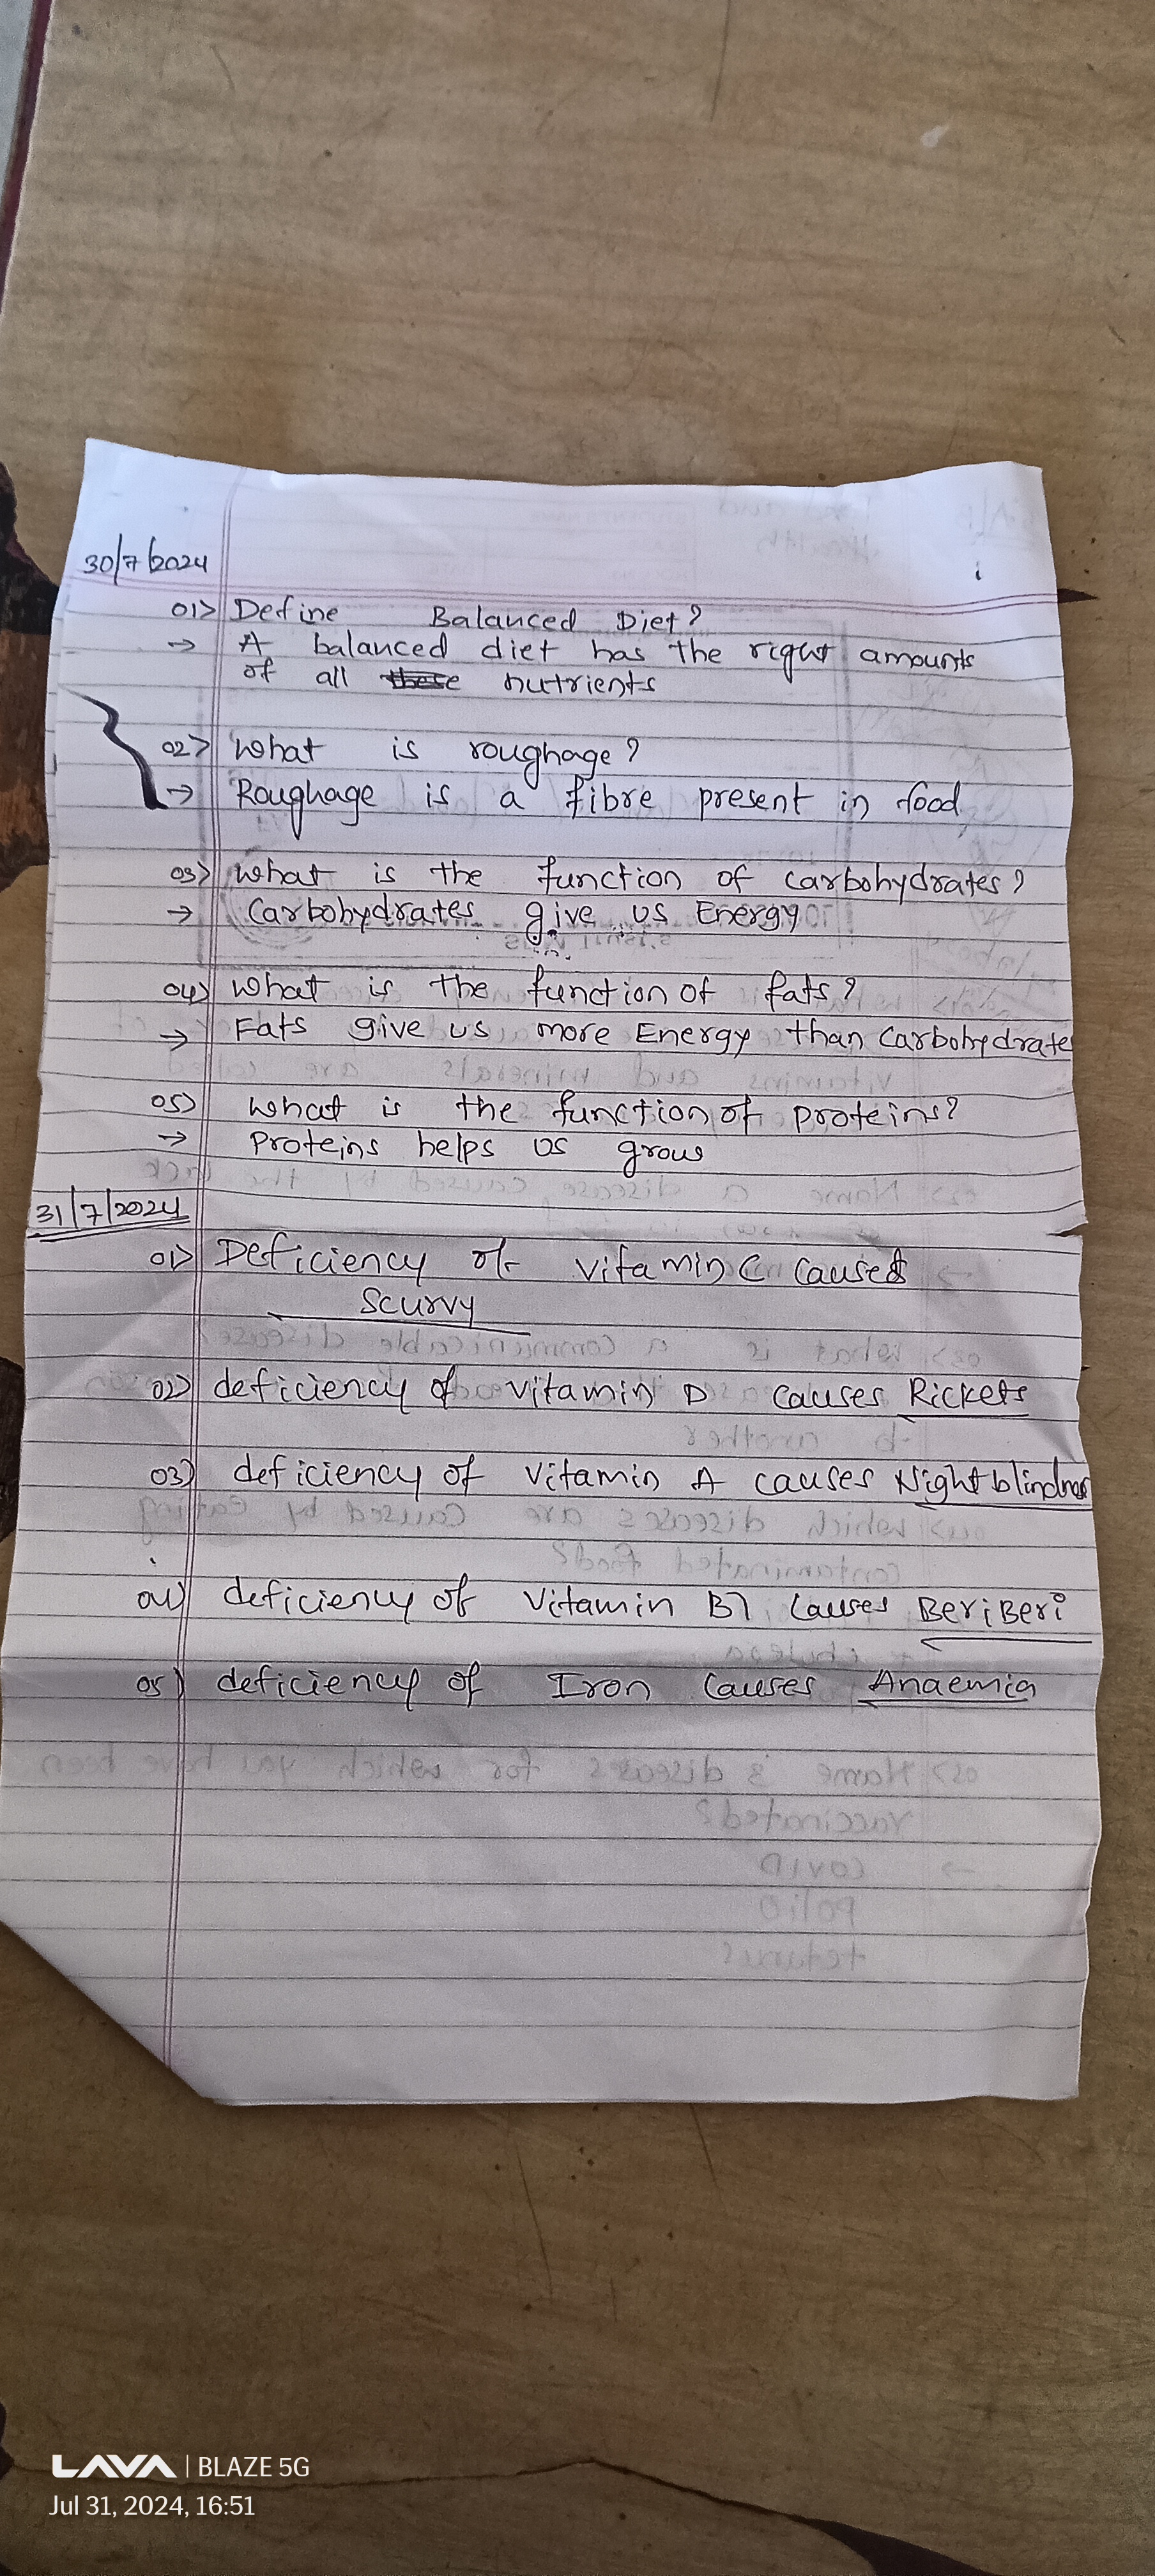 30/7/2024
i
01> Define Balanced Diet?
→ A balanced diet has the right amounts
of all these nutrients
02> What is roughage?
→ Roughage is a fibre present in food
03> What is the function of carbohydrates?
→ Carbohydrates give us Energy
04) What is the function of fats?
→ Fats give us more Energy than Carbohydrate
05) What is the function of proteins?
→ Proteins helps us grow
31/7/2024
01) Deficiency of vitamin C causes
Scurvy
02) deficiency of vitamin D causes Rickets
03) deficiency of vitamin A causes Nightblindness
04) deficiency of Vitamin B1 causes BeriBeri
05) deficiency of Iron Causes Anaemia
LAVA | BLAZE 5G
Jul 31, 2024, 16:51